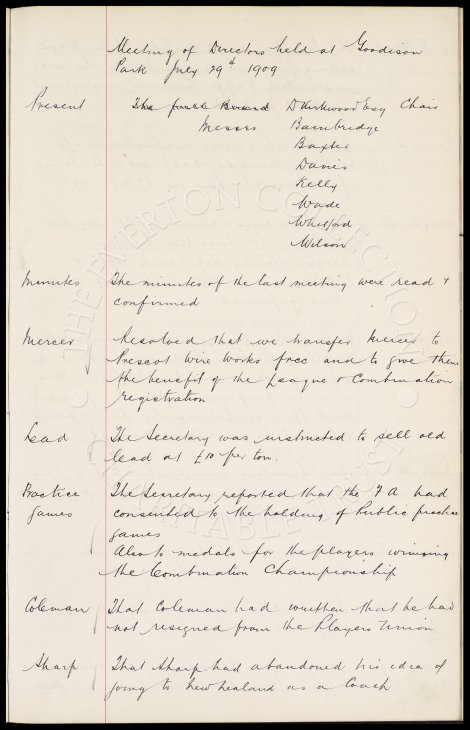 Meeting of Directors held at Goodison
Park July 29th 1909
Present The D Kirkwood Esq Chair
Messrs Bainbridge
Baxter
Davies
Kelly
Wade
Whitford
Wilson
Minutes The minutes of the last meeting were read &
confirmed
Mercer Resolved that we transfer Mercer to
Prescot Wire Works free and to give them
the benefit of the League & Combination
registration
Lead The Secretary was instructed to sell old
lead at £10 per ton.
Practice The Secretary reported that the F A had
games consented to the holding of Public practice
games
Also to medals for the players winning
the Combination Championship
Coleman That Coleman had written that he had
not resigned from the Players Union
Sharp That Sharp had abandoned his idea of
going to New Zealand as a Coach
© THE EVERTON COLLECTION CHARITABLE TRUST